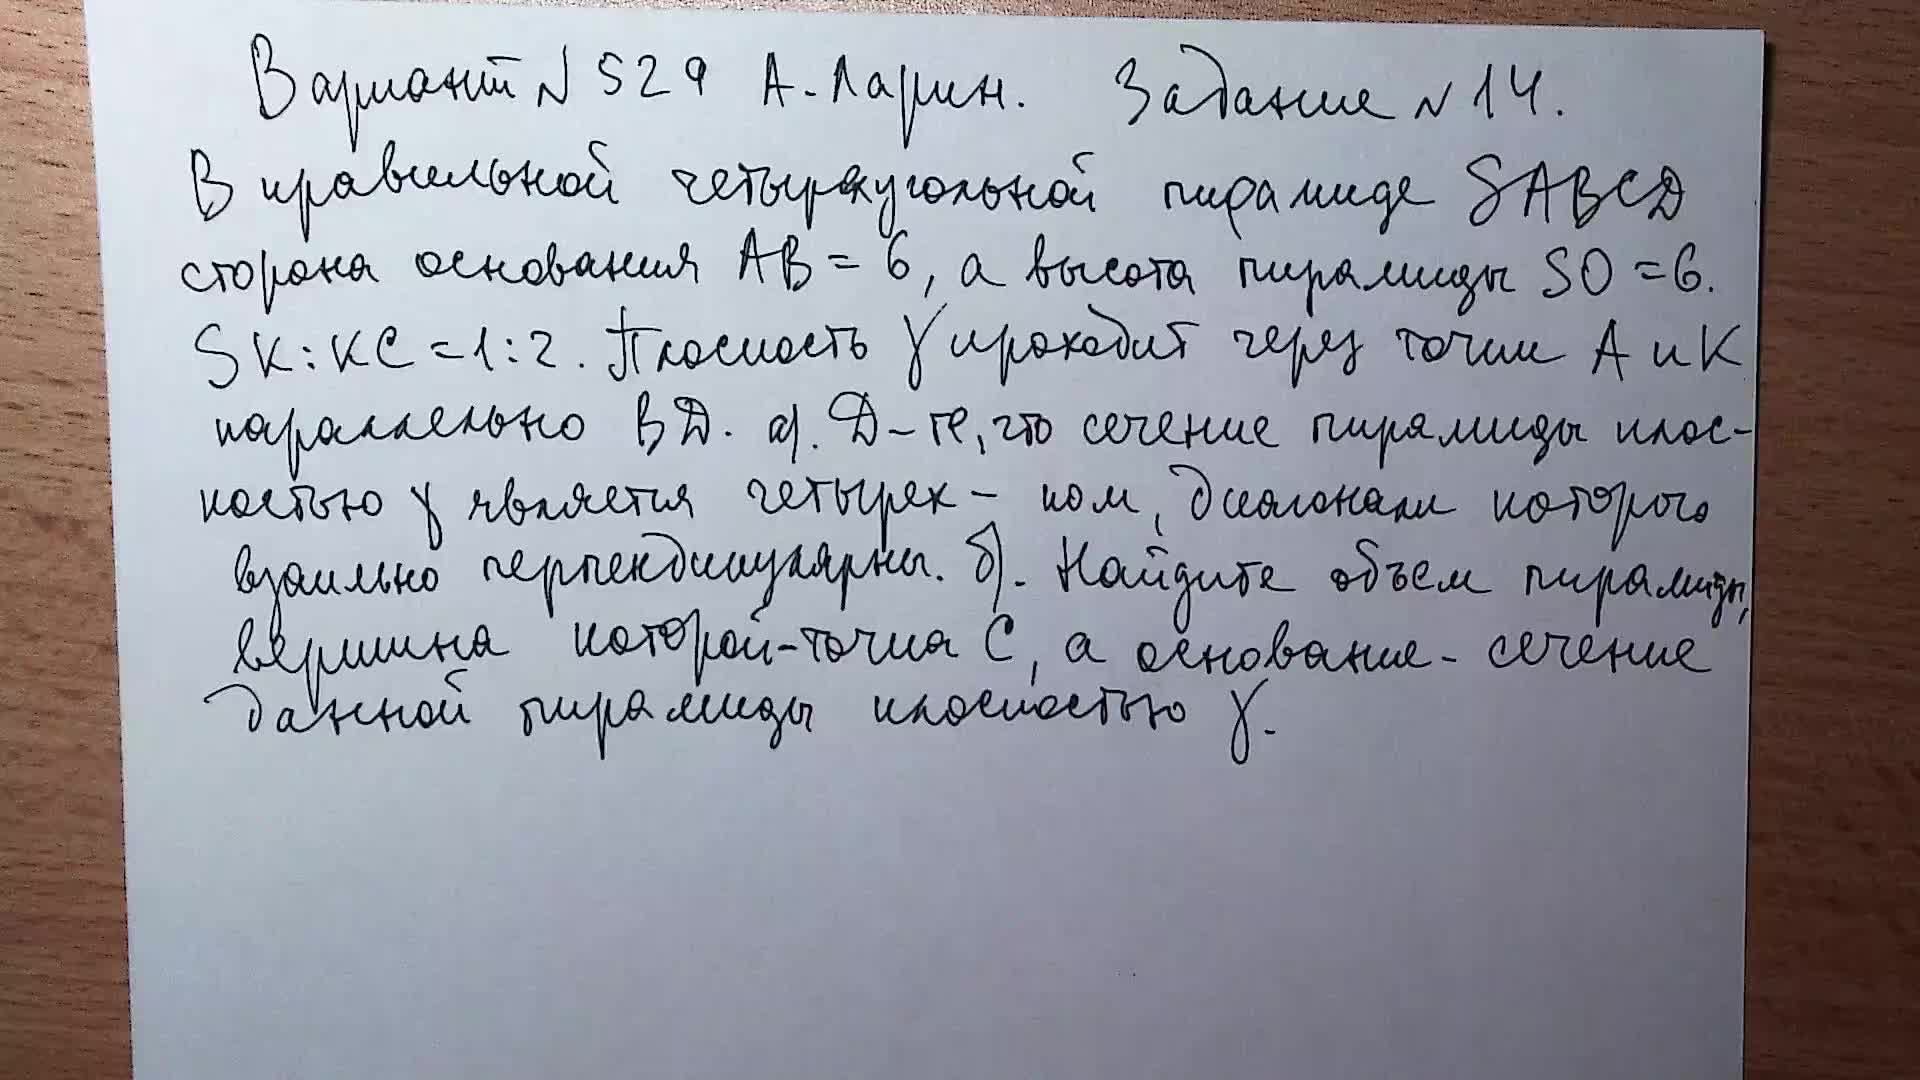 Вариант N 529 А. Ларин. Задание N 14.
В правильной четырехугольной пирамиде SABCD
сторона основания AB = 6, а высота пирамиды SO = 6.
SK:KC = 1:2. Плоскость γ проходит через точки A и K
параллельно BD. а). Д-те, что сечение пирамиды плос-
костью γ является четырех-ком, диагонали которого
взаимно перпендикулярны. б). Найдите объем пирамиды,
вершина которой-точка C, а основание- сечение
данной пирамиды плоскостью γ.